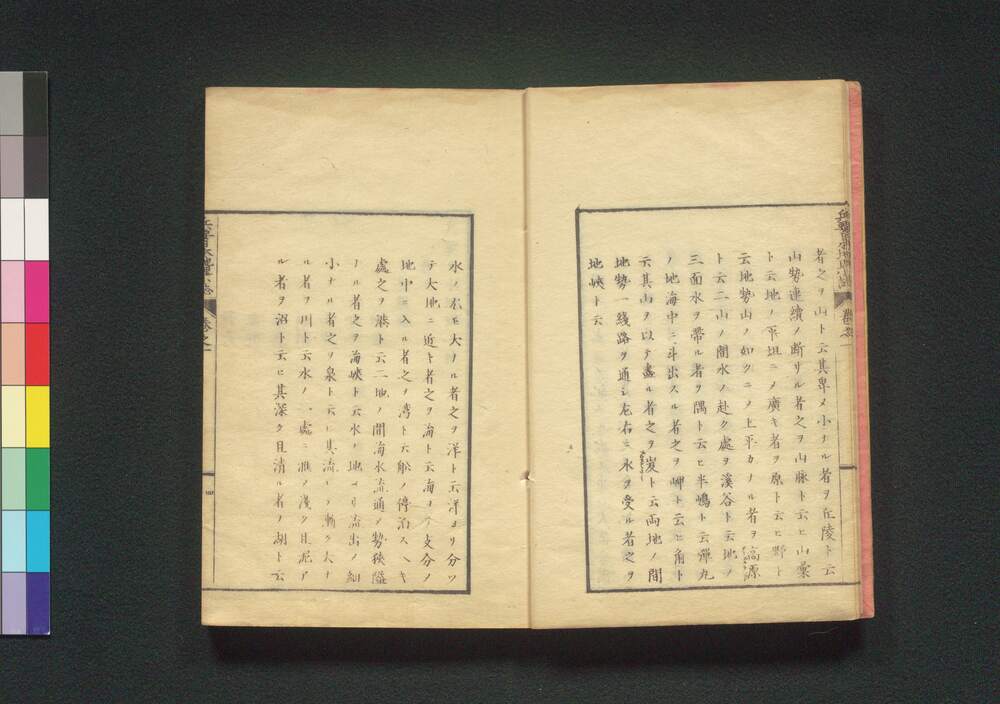 者之ヲ山ト云其卑メ小ナル者ヲ丘陵ト云
山勢連續ノ断サル者之ヲ山脉ト云ヒ山彙
ト云地ノ平坦ニメ廣キ者ヲ原ト云ヒ野ト
云地勢山ノ如クニメ上平カノル者ヲ高原
ト云二山ノ間水ノ赴ク處ヲ溪谷ト云地ノ
三面水ヲ帶ル者ヲ隅ト云ヒ半嶋ト云彈丸
ノ地海中ニ斗出スル者之ヲ岬ト云ヒ角ト
云其山ヲ以テ盡ル者之ヲ岌ト云両地ノ間
地勢一線路ヲ通シ左右ニ水ヲ受ル者之ヲ
地峽ト云
水ノ大ノル者之ヲ洋ト云洋ヨリ分ツ
テ大地ニ近ト者之ヲ海ト云海ヲ支分ノ
地中ニ入ル者之ヲ湾ト云舩ノ停泊スヘキ
處之ヲ港ト云二地ノ間海水流通メ勢狹隘
ナル者之ヲ海峽ト云水ノ地ヨリ流出メ細
小ナル者之ヲ泉ト云ヒ其流レテ漸ク大ナ
ル者ヲ川ト云水ノ一處ニ滙メ淺ク且泥ア
ル者ヲ沼ト云ヒ其深ク且清ル者ノ湖ト云
巻之一
四